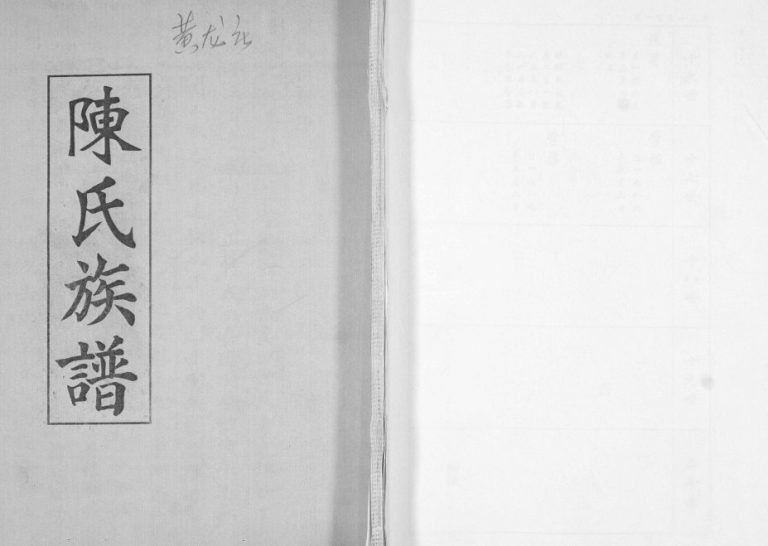 陳氏族譜
黄龙